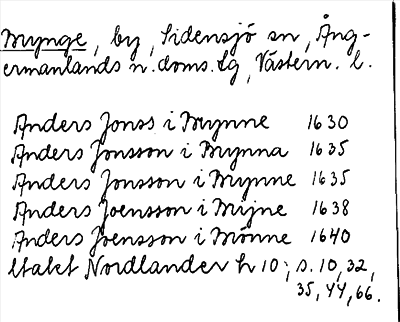 Mynge, by, Sidensjö sn, Ång-
ermanlands n. doms. lg, Västern. l.
Anders Jonss i Mynne 1630
Anders Jonsson i Mynna 1635
Anders Jonsson i Mynne 1635
Anders Joensson i Mijne 1638
Anders Joensson i Mönne 1640
Utakt Nordlander h 10; s. 10, 32,
35, 44, 66.